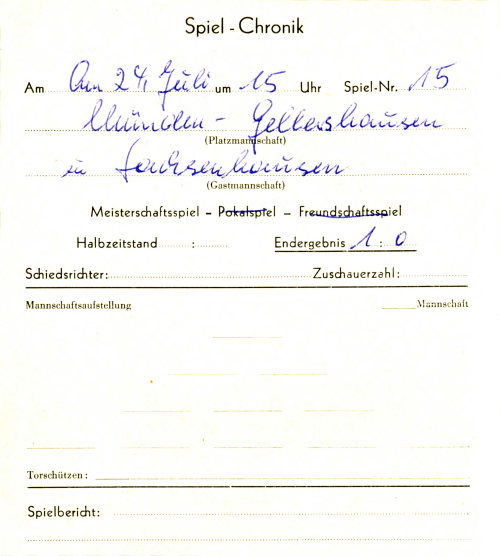 Spiel - Chronik
Am Am 24. Juli um 15 Uhr Spiel-Nr. 15
Münden - Gellershausen
(Platzmannschaft)
in Sachsenhausen
(Gastmannschaft)
Meisterschaftsspiel - Pokalspiel - Freundschaftsspiel
Halbzeitstand : Endergebnis 1 : 0
Schiedsrichter: Zuschauerzahl:
Mannschaftsaufstellung Mannschaft
Torschützen:
Spielbericht: